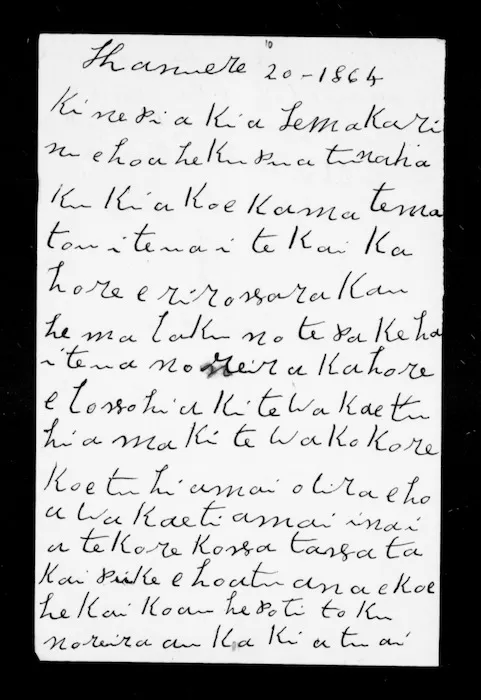 Hanuere 20-1864
Ki nepia Kia te makari
na e hoa he Kupu a tenaha
Ku Ki a Koe Kamatema
tou i tenai te Kai Ka
hore e rirongara Kau
he ma laku no te pakeha
itena noreira Kahore
e longohia Ki te Wakaetu
hia ma Ki te Wakokore
Koetu hiamai otira eho
a Wakaetiamai inai
a te Kore Konga tangata
Kai puke e hoatu ana e Koe
he Kai Koau he poti to Ku
noreira au Ka Ki atu ai